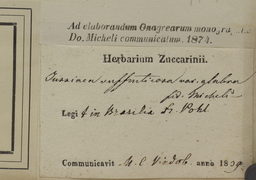 Ad elaborandum Onagrearum monogra
Do. Micheli communicatum. 1874.
Herbarium Zuccarinii.
Jussiaea suffruticosa var. glabra
fid. Micheli
Legi t in Brasilia Dr. Pohl
Communicavit M. C. Vindob. anno 1839